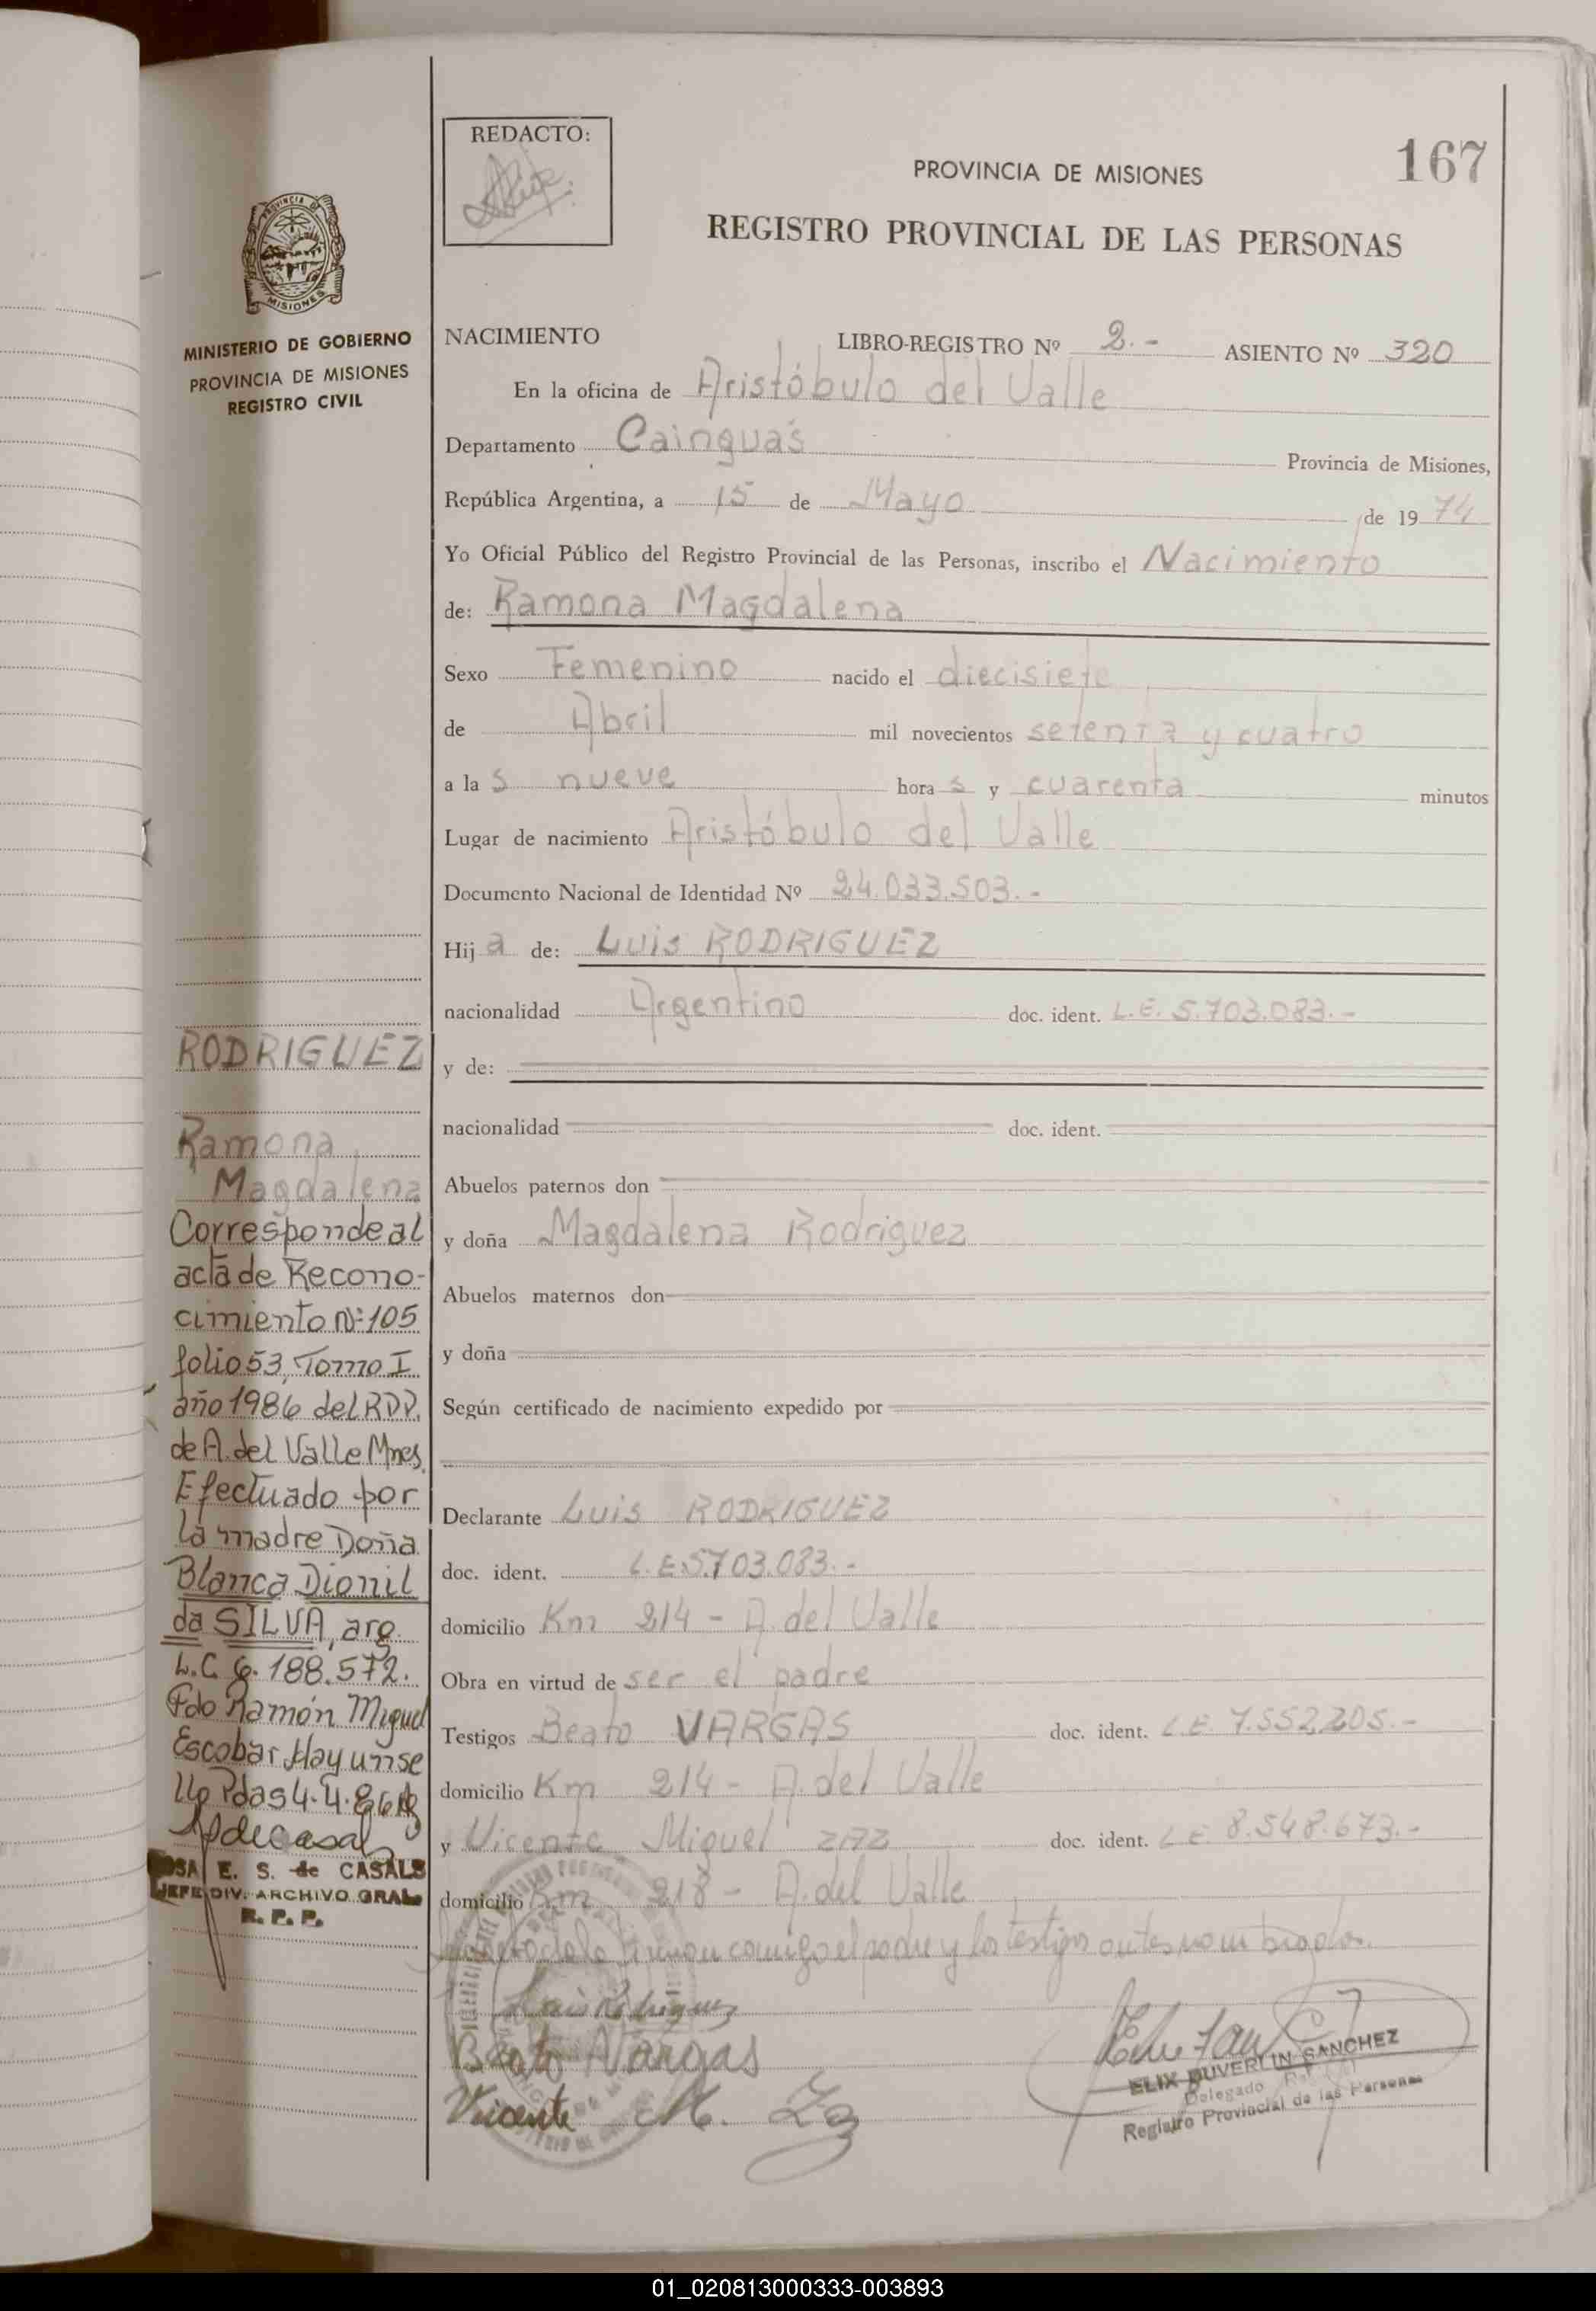 REDACTO:
PROVINCIA DE MISIONES
167
REGISTRO PROVINCIAL DE LAS PERSONAS
PROVINCIA DE
MISIONES
MINISTERIO DE GOBIERNO
PROVINCIA DE MISIONES
REGISTRO CIVIL
NACIMIENTO LIBRO-REGISTRO Nº 2.- ASIENTO Nº 320
En la oficina de Aristóbulo del Valle
Departamento Cainguás Provincia de Misiones,
República Argentina, a 15 de Mayo de 1974
Yo Oficial Público del Registro Provincial de las Personas, inscribo el Nacimiento
de: Ramona Magdalena
Sexo Femenino nacido el diecisiete
de Abril mil novecientos setenta y cuatro
a las nueve horas y cuarenta minutos
Lugar de nacimiento Aristóbulo del Valle
Documento Nacional de Identidad Nº 24.033.503.-
Hija de: Luis RODRIGUEZ
nacionalidad Argentino doc. ident. L.E. 5.703.083.-
y de:
nacionalidad doc. ident.
Abuelos paternos don
y doña Magdalena Rodriguez
Abuelos maternos don
y doña
Según certificado de nacimiento expedido por
Declarante Luis RODRIGUEZ
doc. ident. L.E.5.703.083.-
domicilio Km 214 - A. del Valle
Obra en virtud de ser el padre
Testigos Beato VARGAS doc. ident. L.E. 7.552.205.-
domicilio Km 214 - A. del Valle
y Vicente Miguel doc. ident. L.E. 8.548.673.-
domicilio Km 218 - A. del Valle
firman conmigo el padre y los testigos antes nombrados.
Luis Rodriguez
Beato Vargas
Vicente M.
ELIX DUVERLIN SANCHEZ
Delegado
Registro Provincial de las Personas
RODRIGUEZ
Ramona
Magdalena
Corresponde al
acta de Recono-
cimiento Nº 105
folio 53, Tomo I
año 1986 del RPP.
de A. del Valle Mnes.
Efectuado por
la madre Doña
Blanca Dionil
da SILVA, arg.
L.C. 6.188.572.
Fdo Ramón Miguel
Escobar Hay un se
llo Pdas 4.4.86
E. S. de CASALS
JEFE DIV. ARCHIVO GRAL
R. P. P.
01_020813000333-003893